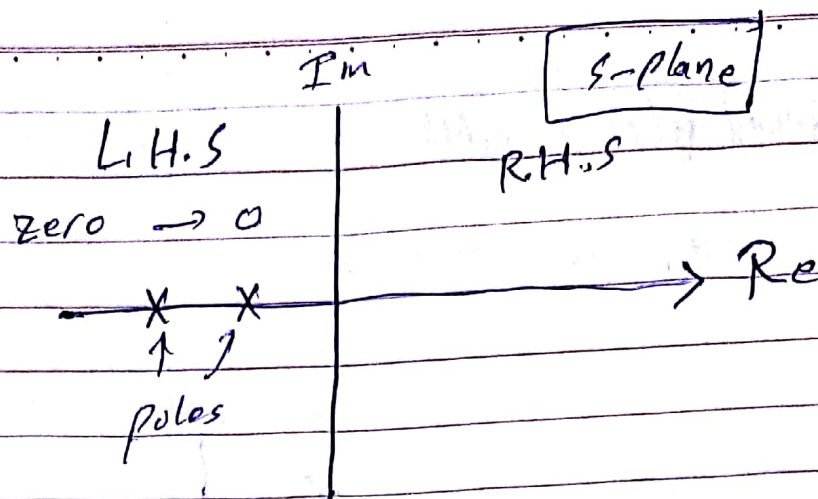 Im
s-plane
L.H.S
R.H.S
zero → o
Re
x x
↑ ↗
poles